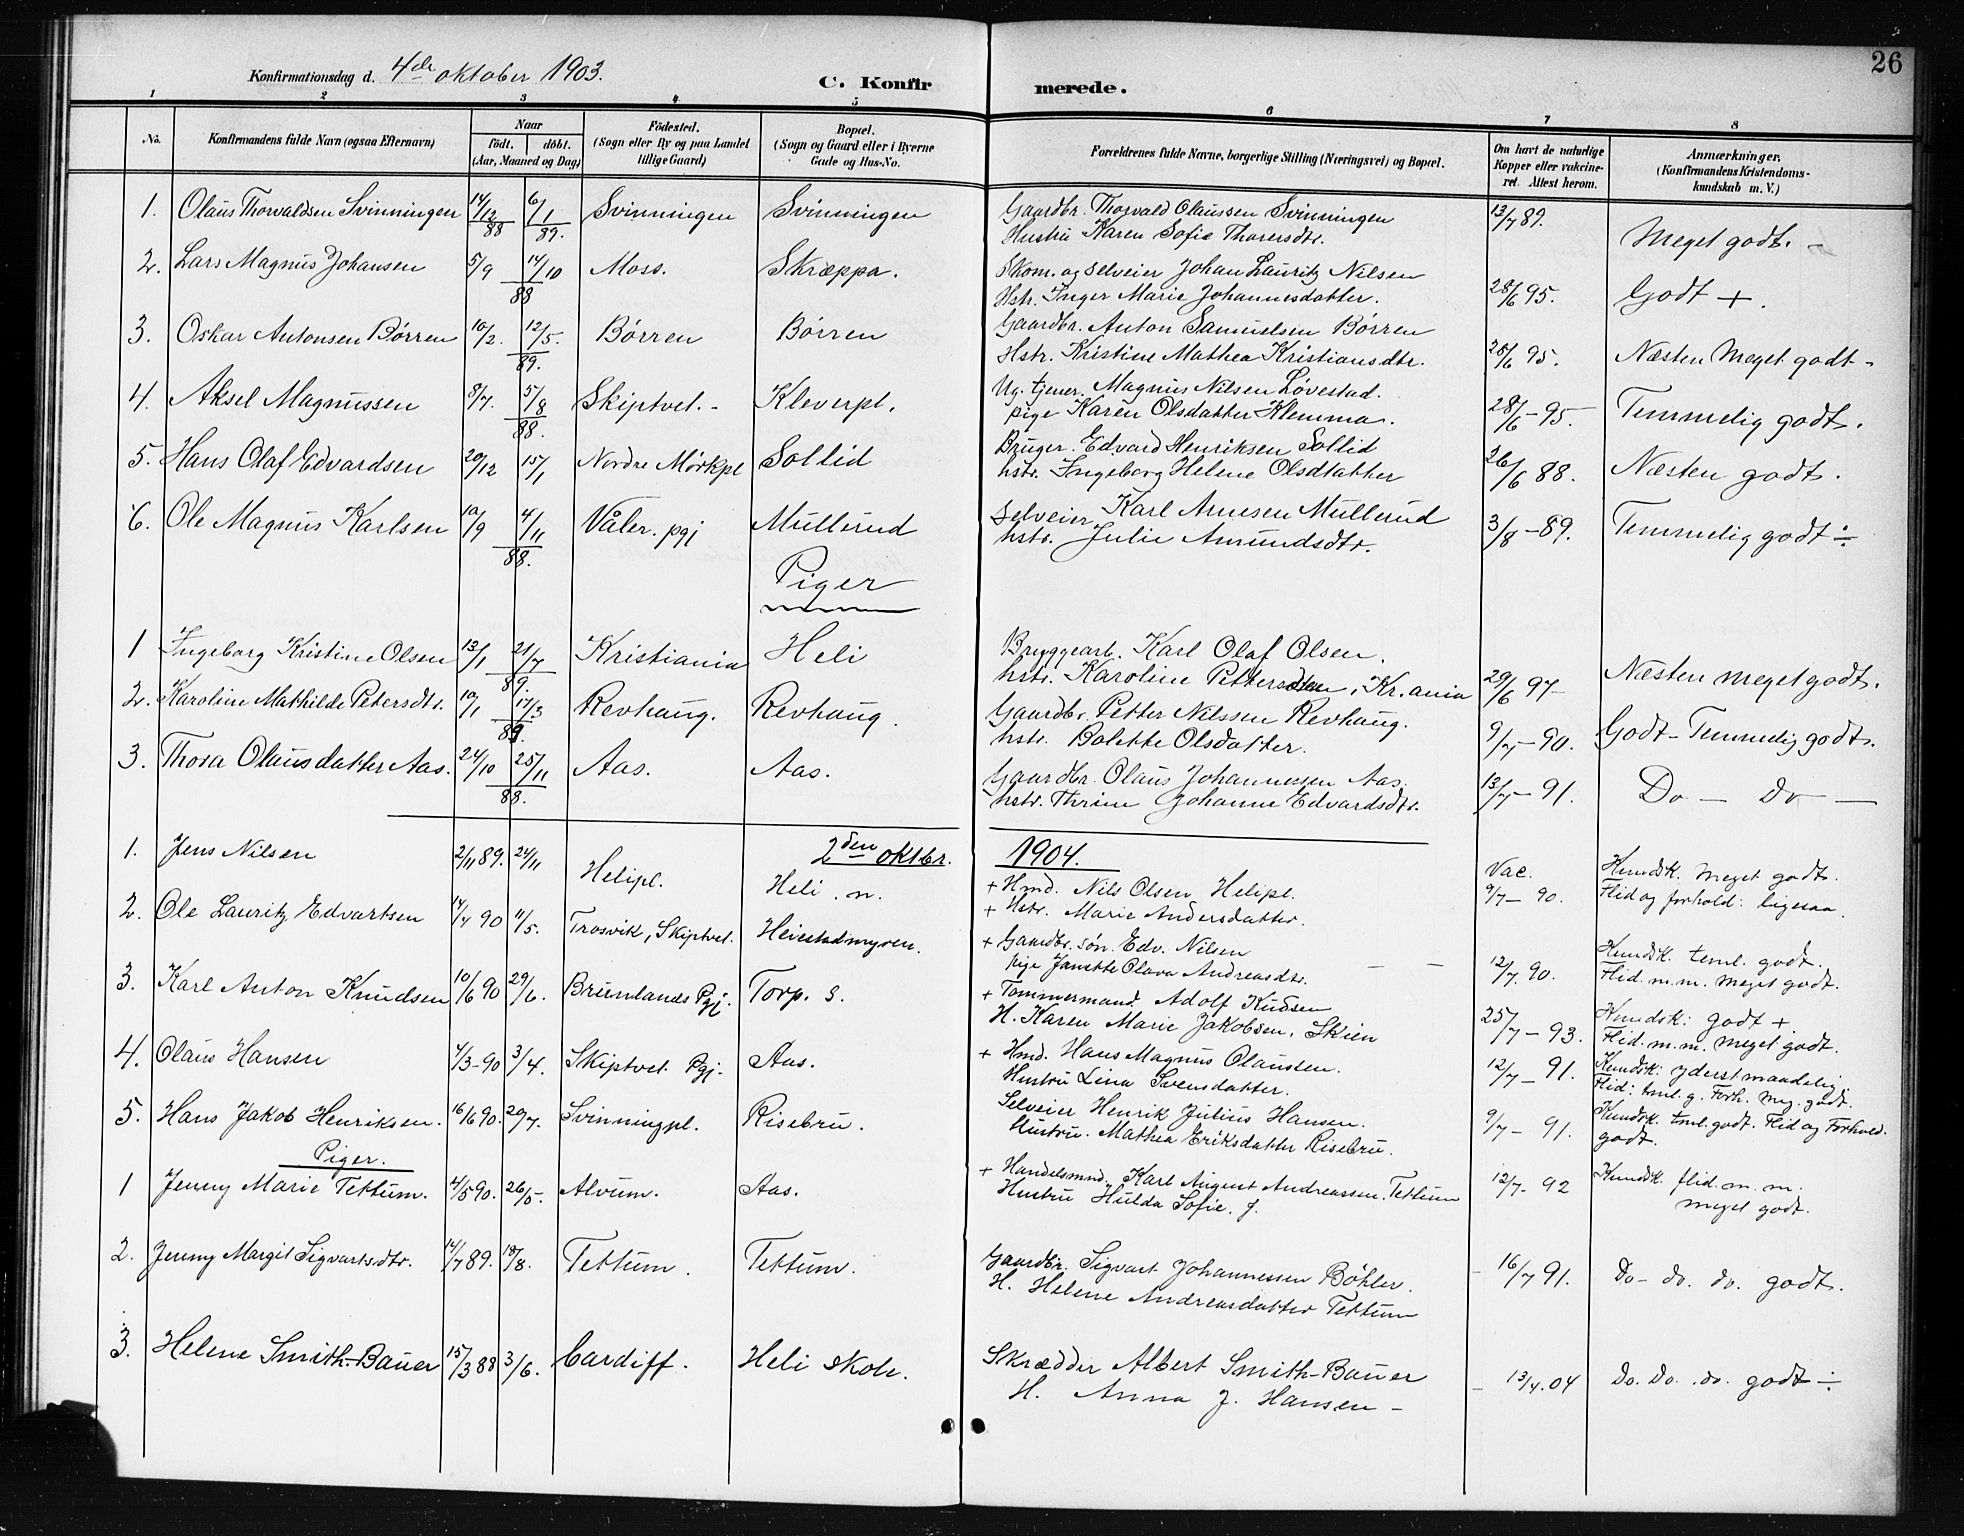 26
Konfirmationsdag d. 4de oktober 1903. C. Konfirmerede.
1 2 3 4 5 6 7 8
No. Konfirmandens fulde Navn (ogsaa Efternavn) Naar födt. döbt. (Aar, Maaned og Dag) Födested. (Sogn eller By og paa Landet tillige Gaard) Bopæl. (Sogn og Gaard eller i Byerne Gade og Hus-No. Forældrenes fulde Navne, borgerlige Stilling (Næringsvei) og Bopæl. Om havt de naturlige Kopper eller vakcineret. Attest herom. Anmærkninger. (Konfirmandens Kristendomskundskab m. V.)
1. Olaus Thorvaldsen Svinningen 14/12 88 6/1 89. Svinningen Svinningen Gaardbr. Thorvald Olaussen Svinningen 13/7 89. Meget godt. -
Hustru Karen Sofie Thorersdtr.
2. Lars Magnus Johansen 5/9 14/10 88 Moss. Skræppa. Skom. og selveier Johan Lauritz Nilsen 28/6 95. Godt +.
Hstr. Inger Marie Johannesdatter.
3. Oskar Antonsen Börren 10/2. 12/5. 89. Börren Börren Gaardbr. Anton Samuelsen Börren 28/6 95. Næsten Meget godt -
Hstr. Kristine Mathea Kristiansdtr.
4. Aksel Magnussen 8/7. 5/8 88. Skiptvet. - Kleverpl. Ug. tjener. Magnus Nilsen Løvestad. 28/6 - 95 - Temmelig godt.
pige Karen Olsdatter Klemma.
5. Hans Olaf Edvardsen 20/12 15/1 Nordre Mörkpl Sollid Bruger. Edvard Henriksen Sollid 26/6 88. Næsten godt.
hstr. Ingeborg Helene Olsdtatter
6. Ole Magnus Karlsen 10/9 4/11 88. Våler. pgj Mullerud Selveier Karl Arnesen Mullerud 3/8 - 89. Temmelig godt ÷
hstr. Julie Amundsdtr.
Piger
1 Ingeborg Kristine Olsen 13/1 21/7 89 Kristiania Heli Bryggearb. Karl Olaf Olsen. 29/6 97 - Næsten meget godt.
hstr. Karoline Petters, Kr.ania
2. Karoline Mathilde Petersdtr. 10/1 17/3 89. Revhaug. Revhaug. Gaardbr. Petter Nilssen Revhaug. 9/7 - 90. Godt - Temmelig godt.
hstr. Bolette Olsdatter.
3. Thora Olausdatter Aas. 24/10 25/11 88. Aas. Aas. Gaardbr. Olaus Johannessen Aas. 13/7 - 91. Do - Do -
hstr. Thrine Johanne Edvardsdtr.
2den oktbr. 1904.
1. Jens Nilsen 2/11 89. 24/11 Helipl. Heli. n. + Hmd. Nils Olsen Helipl. Vac. 9/7 - 90. Kundsk. meget godt.
+ Hstr. Marie Andersdatter. Flid og forhold: ligesaa.
2. Ole Lauritz Edvartsen 14/4 90 11/5. Trosvik, Skiptvet. Heiestadmyren. + Gaardbr. søn. Edv. Nilsen - - 12/7. 90. Kundsk. teml. godt.
pige Janette Olava Andreasdtr. Flid. m.m. meget godt.
3. Karl Anton Knudsen 10/6 90 29/6. Brunlanes Pgj. Torp. s. + Tømmermand Adolf Kudsen 25/7 - 93. Kundsk: godt +
H. Karen Marie Jakobsen. Skien Flid. m.m. meget godt.
4. Olaus Hansen 4/3 - 90 3/4. Skiptvet Pgj. Aas. + Hmd. Hans Magnus Olaussen. 12/7 - 91. Kundsk: yderst maadelig.
Hustru Lina Svensdatter. Flid: teml. g. Forh. meg. godt.
5. Hans Jakob Henriksen. 16/6 90. 20/7. Svinningpl. Risebru. Selveier Henrik Julius Hansen. 9/7 - 91. Kundsk. teml. godt. Flid og Forhold.
Hustru. Mathea Eriksdatter Risebru. godt.
Piger.
1 Jenny Marie Tettum. 4/5 90. 26/5. Alvum. Aas. + Handelsmnd. Karl August Andreassen. Tettum 12/7 - 92 Kundsk. flid. m. m.
Hustru Hulda Sofie. J. meget godt.
2. Jenny Margit Sigvartsdtr. 14/7 89. 18/8. Tettum. Tettum. Gaardbr. Sigvart Johannessen Böhler. - 16/7 91. Do - do. do. godt.
H. Helene Andreasdatter Tettum
3. Helene Smith-Bauer 15/3 88 3/6. Cardiff. Heli skole. Skrædder Albert Smith-Bauer - 13/4. 04 Do. Do. do. godt ÷
H. Anna J. Hansen -